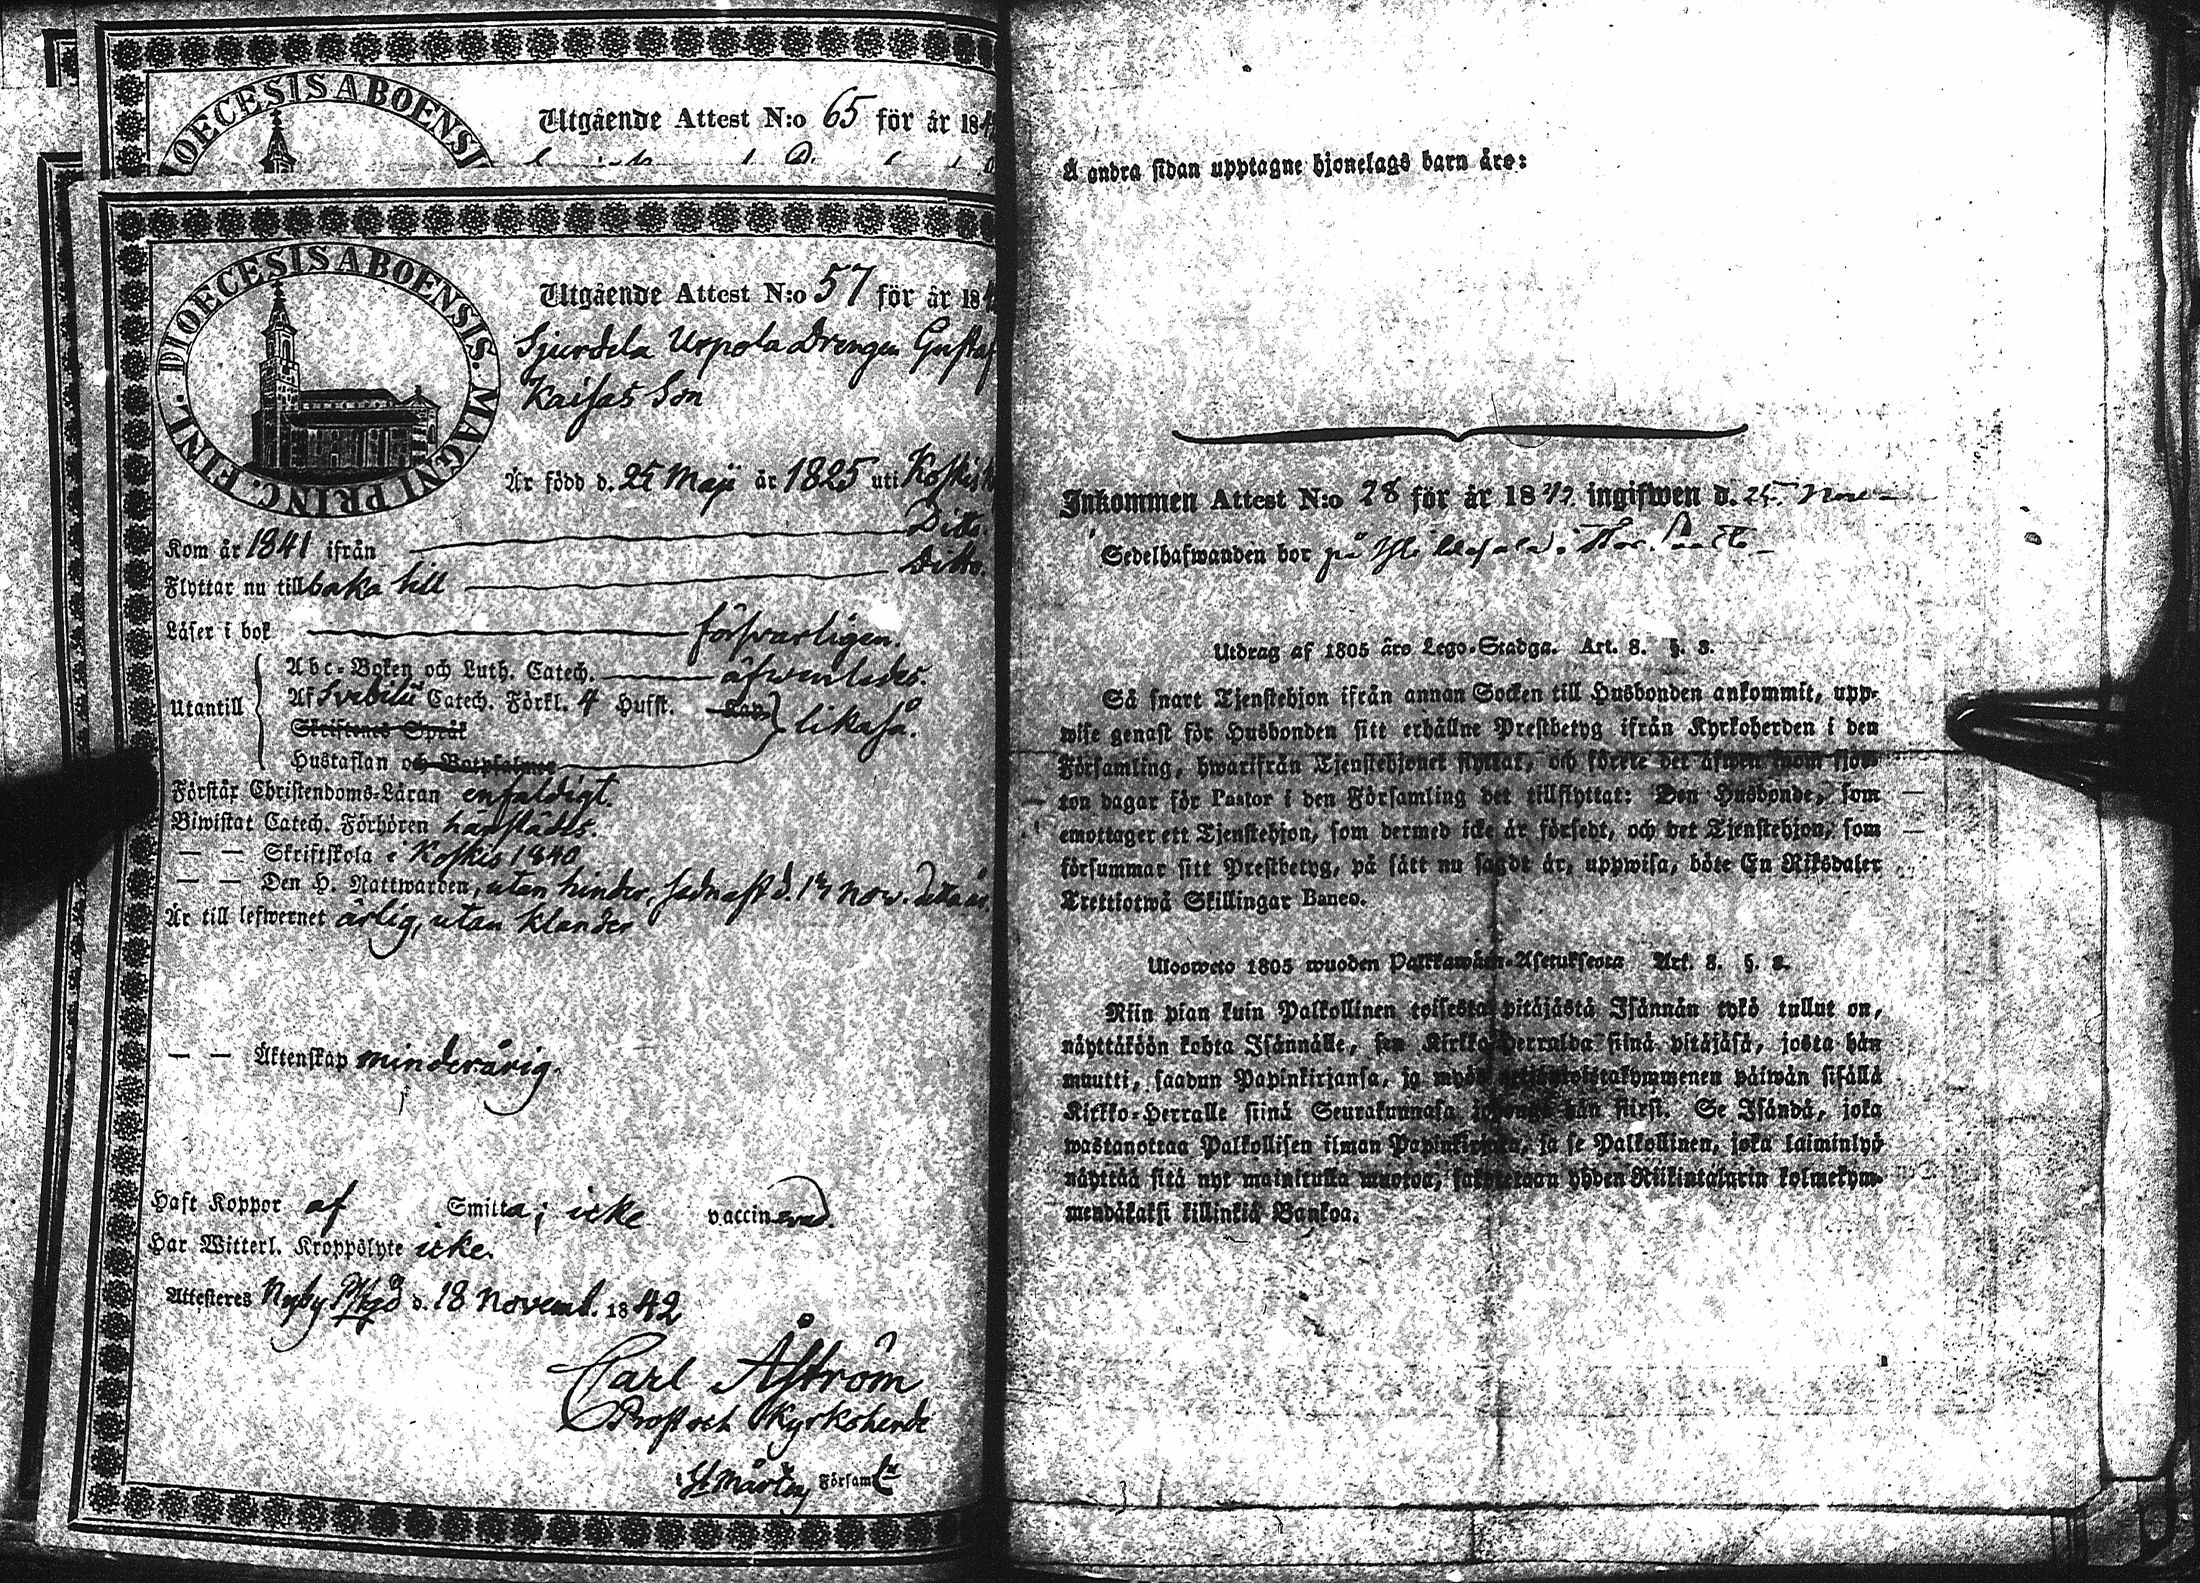 DIOECESIS ABOENSI
Utgående Attest N:o 65 för år 184
DIOECESIS ABOENSIS. MAGNI PRINC. FINL.
Utgående Attest N:o 57 för år 184
Sjurdela Uppola Drengen Gustaf
Kaisas Son
Är född d. 25 Maji år 1825 uti Koskis
Kom år 1841 ifrån Ditto.
Flyttar nu tillbaka till Ditto.
Läser i bok försvarligen.
Abc-Boken och Luth. Catech. äfvenledes.
Utantill Af Svebilii Catech. Förkl. 4 Hufst. likaså.
Skriftenes Språk
Hustaflan och Botpsalmer
Förstår Christendoms-Läran enfaldigt.
Biwistat Catech. Förhören härstädes.
— — Skriftskola i Koskis 1840
— — Den H. Nattwarden, utan hinder, sednast d. 13 Nov. detta år.
Är till lefwernet ärlig, utan klander
— — Äktenskap minderårig.
Haft Koppor af Smitta; icke vaccinerad.
Har Witterl. Kroppslyte icke.
Attesteras Nyby Pstgd d. 18 Novemb. 1842
Carl Åström
Prost och Kyrkoherde
i St Mårtens Förssaml
Å andra sidan upptagne hjonelags barn äro:
Inkommen Attest N:o 28 för år 1842 ingifwen d. 25 Nov
Sedelhafwanden bor på Yli
Utdrag af 1805 års Lego-Stadga. Art. 8. §. 3.
Så snart Tjenstehjon ifrån annan Socken till Husbonden ankommit, upp-
wise genast för Husbonden sitt erhållne Prestbetyg ifrån Kyrkoherden i den
Församling, hwarifrån Tjenstehjonet flyttat, och förete det äfwen inom fjor-
ton dagar för Pastor i den Församling det tillflyttat: Den Husbonde, som
emottager ett Tjenstehjon, som dermed icke är försedt, och det Tjenstehjon, som
försummar sitt Prestbetyg, på sätt nu sagdt är, uppwisa, böte En Riksdaler
Trettiotwå Skillingar Banco.
Uloosweto 1805 wuoden Palkkawäen-Asetuksesta Art. 8. §. 3.
Niin pian kuin Palkollinen toisesta pitäjästä Isännän tykö tullut on,
näyttäköön kohta Isännälle, sen Kirkko-Herralda siinä pitäjäsä, josta hän
muutti, saadun Papinkirjansa, ja myös neljäntoistakymmenen päiwän sisällä
Kirkko-Herralle siinä Seurakunnasa johonga hän siirsi. Se Isändä, joka
wastanottaa Palkollisen ilman Papinkirjata, ja se Palkollinen, joka laiminlyö
näyttää sitä nyt mainitulla muotoa, sakotetaan yhden Riikintalarin kolmekym-
mendäkaksi killinkiä Bankoa.